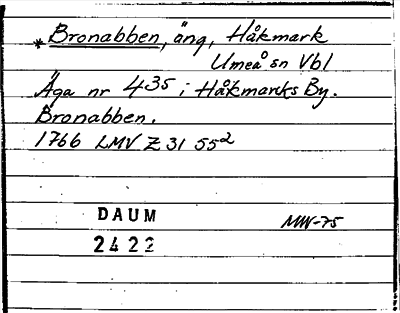 * Bronabben, äng, Håkmark
Umeå sn Vbl
Äga nr 435 i Håkmarks By.
Bronabben.
1766 LMV Z 31 55²
DAUM
MW-75
2422